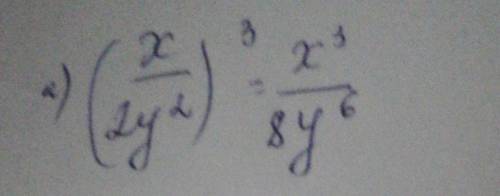 а) (x/2y²)³ = x³/8y⁶